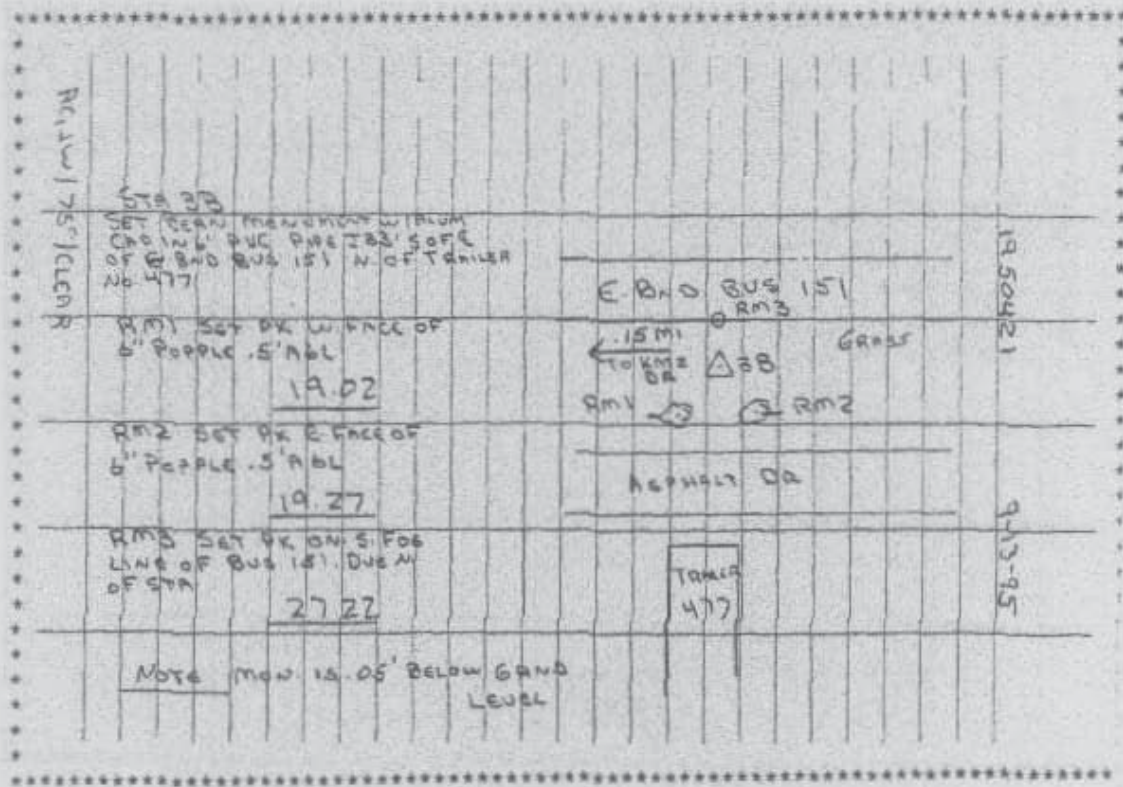 AC, JW / 75° / CLEAR
STA 3B
SET BERN MONUMENT W/ALUM
CAP IN 6" PVC PIPE 133' S OF
OF E BND BUS 151 N. OF TRAILER
No 477
RM1 SET PK W. FACE OF
6" POPPLE .5' AGL
19.02
RM2 SET PK E. FACE OF
6" POPPLE .5' AGL
19.27
RM3 SET PK ON S. FOG
LINE OF BUS 151. DUE N.
OF STA
27.22
NOTE MON. IS .05' BELOW GRND
LEVEL
E. BND BUS 151
RM3
.15 MI
GRASS
TO
DR
3B
RM1
RM2
ASPHALT DR
TRAILER
477
1950421
9-13-95